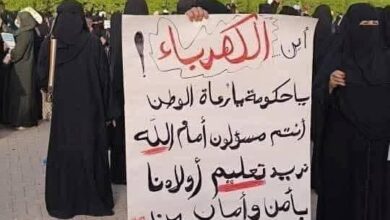 أين الكهرباء !
ياحكومة يارعاة الوطن
أنتم مسؤلون أمام الله
نريد تعليم أولادنا
بأمن وأمان